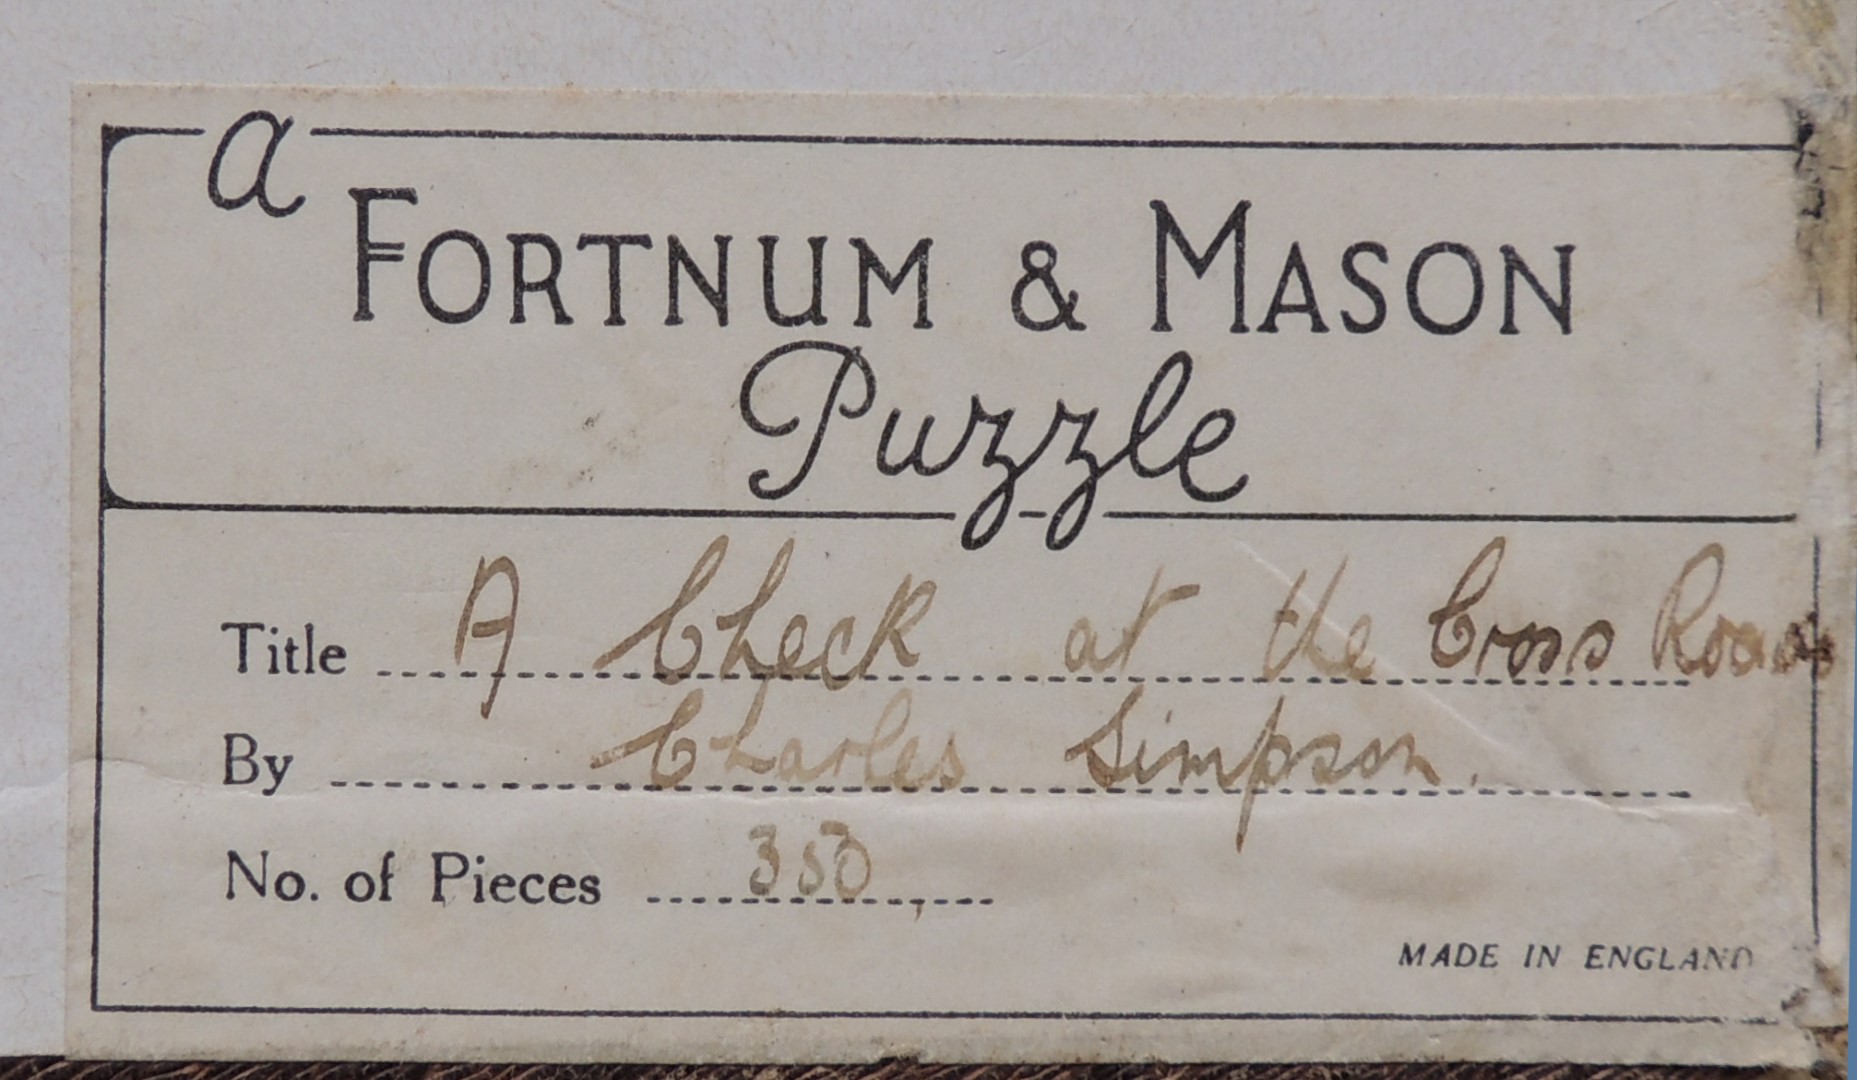 a
FORTNUM & MASON
Puzzle
Title A Check at the Cross Roads
By Charles Simpson.
No. of Pieces 350
MADE IN ENGLAND